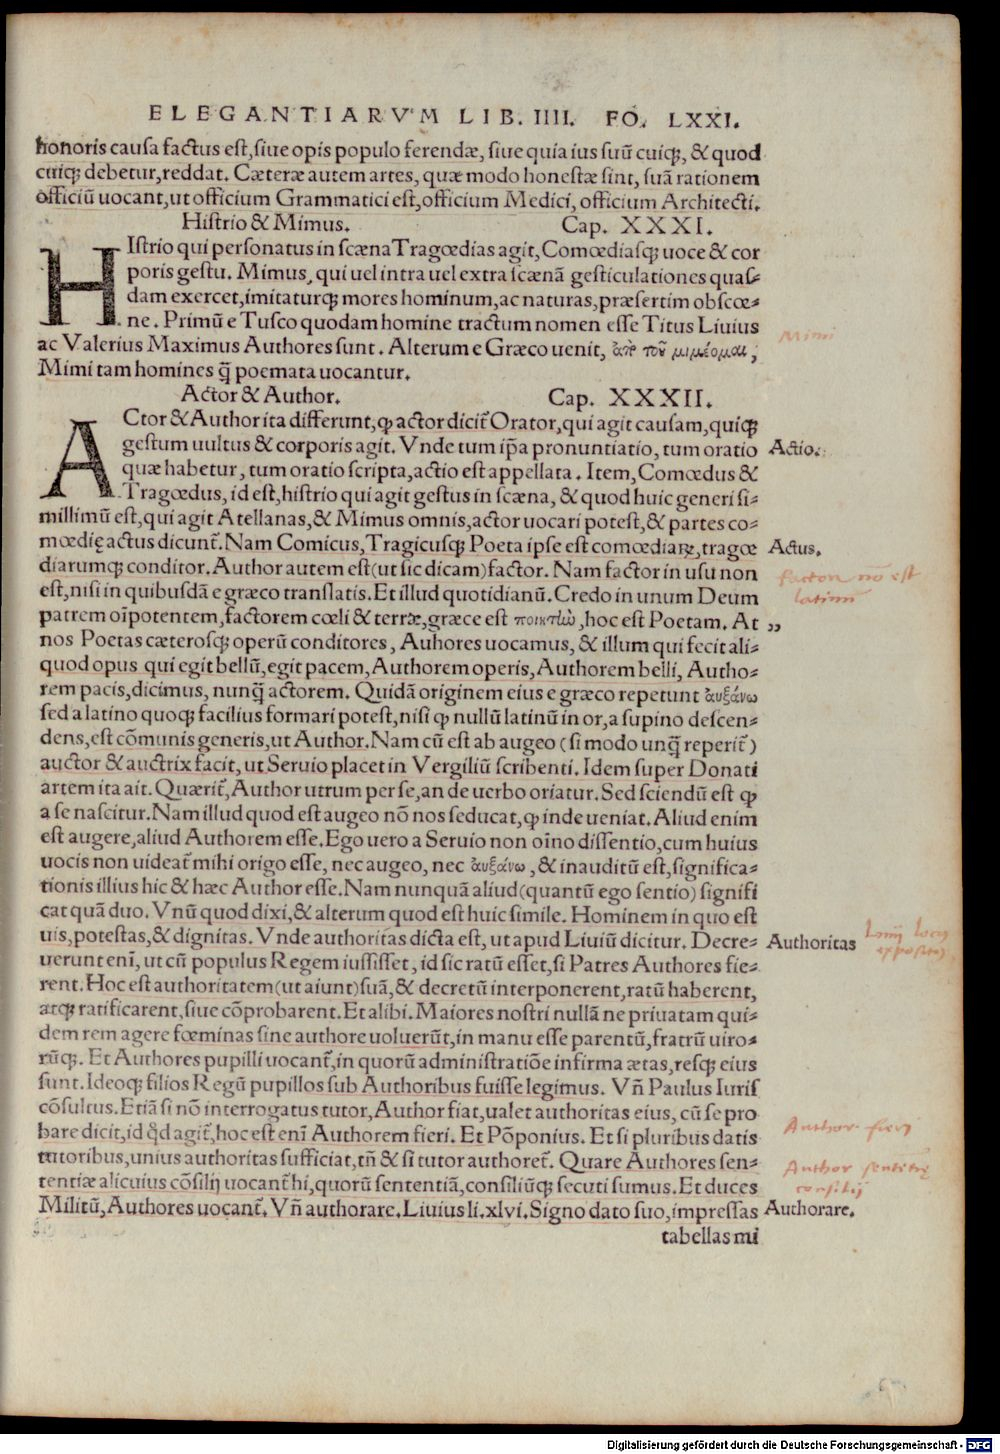 ELEGANTIARVM LIB. IIII. FO. LXXI.
honoris causa factus est, siue opis populo ferendæ, siue quia ius suū cuiqȝ, & quod
cuiqȝ debetur, reddat. Cæteræ autem artes, quæ modo honestæ sint, suā rationem
officiū uocant, ut officium Grammatici est, officium Medici, officium Architecti.
Histrio & Mimus. Cap. XXXI.
HIstrio qui personatus in scæna Tragœdias agit, Comœdiasqȝ uoce & cor
poris gestu. Mimus, qui uel intra uel extra scænā gesticulationes quas-
dam exercet, imitaturqȝ mores hominum, ac naturas, præsertim obscœ-
ne. Primū e Tusco quodam homine tractum nomen esse Titus Liuius
ac Valerius Maximus Authores sunt. Alterum e Græco uenit, ἀπὸ τοῦ μιμέομαι,
Mimi
Mimi tam homines q̄ poemata uocantur.
Actor & Author. Cap. XXXII.
ACtor & Author ita differunt, ꝙ actor dicit̄ Orator, qui agit causam, quiqȝ
gestum uultus & corporis agit. Vnde tum ip̄a pronuntiatio, tum oratio
Actio.
quæ habetur, tum oratio scripta, actio est appellata. Item, Comœdus &
Tragœdus, id est, histrio qui agit gestus in scæna, & quod huic generi si-
millimū est, qui agit Atellanas, & Mimus omnis, actor uocari potest, & partes co-
mœdię actus dicunt̄. Nam Comicus, Tragicusqȝ Poeta ipse est comœdiaꝝ, tragœ
Actus.
diarumqȝ conditor. Author autem est (ut sic dicam) factor. Nam factor in usu non
factor nō est
latinū
est, nisi in quibusdā e græco translatis. Et illud quotidianū. Credo in unum Deum
patrem oīpotentem, factorem cœli & terræ, græce est ποιητὼ, hoc est Poetam. At
„
nos Poetas cæterosqȝ operū conditores, Auhores uocamus, & illum qui fecit ali-
quod opus qui egit bellū, egit pacem, Authorem operis, Authorem belli, Autho-
rem pacis, dicimus, nunq̄ actorem. Quidā originem eius e græco repetunt ἀυξάνω
sed a latino quoqȝ facilius formari potest, nisi ꝙ nullū latinū in or, a supino descen-
dens, est cōmunis generis, ut Author. Nam cū est ab augeo (si modo unq̄ reperit̄)
auctor & auctrix facit, ut Seruio placet in Vergiliū scribenti. Idem super Donati
artem ita ait. Quærit̄, Author utrum per se, an de uerbo oriatur. Sed sciendū est ꝙ
a se nascitur. Nam illud quod est augeo nō nos seducat, ꝙ inde ueniat. Aliud enim
est augere, aliud Authorem esse. Ego uero a Seruio non oīno dissentio, cum huius
uocis non uideat̄ mihi origo esse, nec augeo, nec ἀυξάνω, & inauditū est, significa-
tionis illius hic & hæc Author esse. Nam nunquā aliud (quantū ego sentio) signifi
cat quā duo. Vnū quod dixi, & alterum quod est huic simile. Hominem in quo est
uis, potestas, & dignitas. Vnde authoritas dicta est, ut apud Liuiū dicitur. Decre-
Authoritas
Liuij locus
expositus
uerunt enī, ut cū populus Regem iussisset, id sic ratū esset, si Patres Authores fie-
rent. Hoc est authoritatem (ut aiunt) suā, & decretū interponerent, ratū haberent,
atqȝ ratificarent, siue cōprobarent. Et alibi. Maiores nostri nullā ne priuatam qui-
dem rem agere fœminas sine authore uoluerūt, in manu esse parentū, fratrū uiro-
rūqȝ. Et Authores pupilli uocant̄, in quorū administratiōe infirma ætas, resqȝ eius
sunt. Ideoqȝ filios Regū pupillos sub Authoribus fuisse legimus. Vn̄ Paulus Iuris
cōsultus. Etiā si nō interrogatus tutor, Author fiat, ualet authoritas eius, cū se pro
Author fieri
bare dicit, id q̄d agit̄, hoc est enī Authorem fieri. Et Pōponius. Et si pluribus datis
tutoribus, unius authoritas sufficiat, tn̄ & si tutor authoret̄. Quare Authores sen-
Author sententię
consilij
tentiæ alicuius cōsilij uocant̄ hi, quorū sententiā, consiliūqȝ secuti sumus. Et duces
Militū, Authores uocant̄. Vn̄ authorare. Liuius li. xlvi. Signo dato suo, impressas
Authorare.
tabellas mi
Digitalisierung gefördert durch die Deutsche Forschungsgemeinschaft - DFG